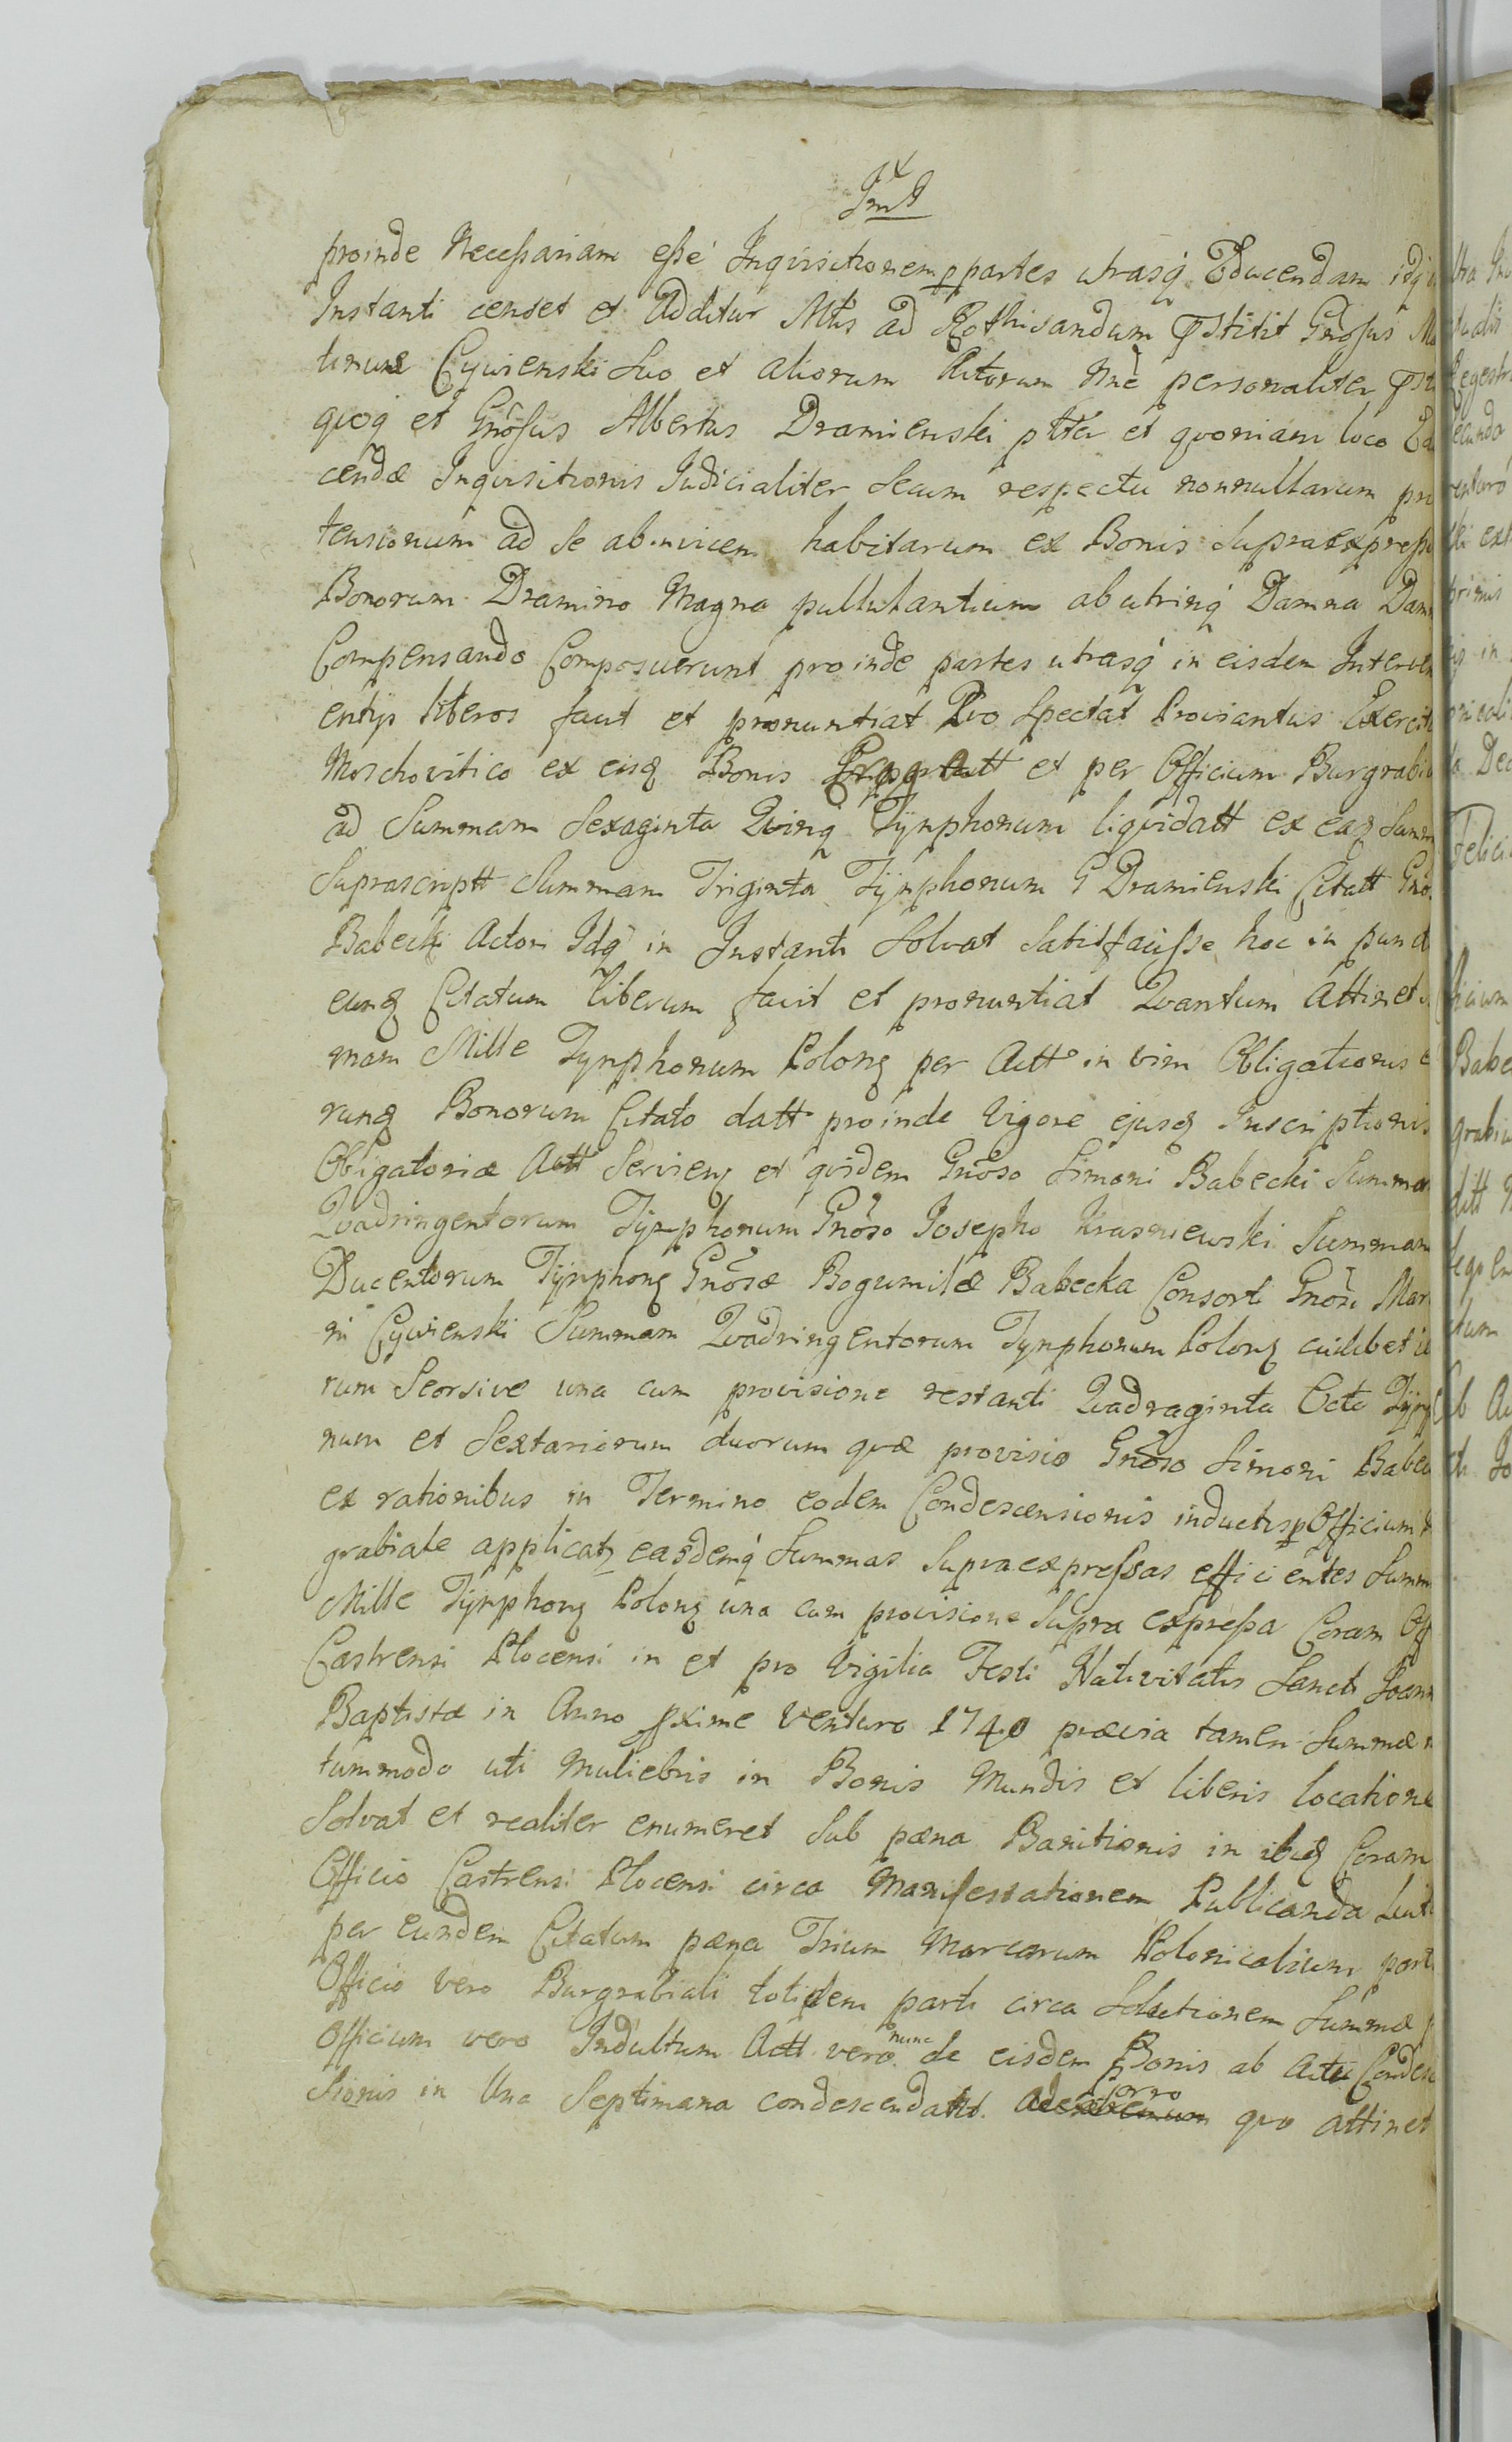 proinde Necessariam esse Inquisitionem p partes utrasq Educendam idq
Instanti censet et Additur Mts ad Rothisandum Pstitit Gnosus
tinus Cywienski Suo et aliorum Actorum Nne personaliter
quoq et Gnosus Albertus Dramienski ptter et quoniam loco
cendæ Inquisitionis Iudicialiter Secum respectu nonnullarum
tensionum ad Se abinvicem habitarum ex Bonis Supraexpress
Bonorum Dramino Magno pullulantium ab utrinq Damna Dam
Compensando Composuerunt proinde partes utrasq in eisdem Interven
entijs liberos facit et pronuntiat Quo Spectat Proviantus Exercit
Moschovitico ex eisq Bonis et per Officium Burgrabi
ad Summam Sexaginta Quinq Tynphonum liquidatt ex eaq Sum
Suprascriptt Summam Triginta Tynphonum G Dramienski Citatt Gno
Babecki Actori Idq in Instanti Solvat Satisfacisse hoc in punct
eunq Citatum liberum facit et pronuntiat Quantum Attinet
mam Mille Tynphonum Polonq per Actt in vim Obligationis
runq Bonorum Citato datt proinde Vigore ejusq Inscriptionis
Obligatoriæ Actt Servienq et quidem Gnoso Simoni Babecki Summam
Quadringentorum Tynphonum Gnoso Iosepho Krasniewski Summam
Ducentorum Tynphonq Gnosæ Bogumilæ Babecka Consorti Gnosi Mar
ni Cywienski Summam Quadringentorum Tynphonum Polonq cuilibet
rum Seorsive una cum provisione restanti Quadraginta Octo Tynp
num et Sextariorum duorum quæ provisio Gnoso Simoni Babec
ex rationibus in Termino eodem Condescensionis inductis p Officium
grabiale applicatq easdemq Summas Supraexpressas efficientes Summ
Mille Tynphonq Polonq una cum provisione Supra expressa Coram Off
Castrensi Plocensi in et pro Vigilia Festi Nativitatis Sancti Joann
Baptistæ in Anno pxime Venturo 1740 prævia tamen Summæ
tummodo uti Muliebris in Bonis Mundis et liberis locatione
Solvat et realiter enumeret Sub pæna Banitionis in ibiq Coram
Officio Castrensi Plocensi circa Manifestationem Publicanda luit
per eundem Citatum pæna Trium Marcarum Polonicalium parti
Officio vero Burgrabiali totidem parti circa Solutionem Summæ
Officium vero Indultum Actt vero nunc de eisdem Bonis ab Actu Condes
sionis in Una Septimana condescendatt. porro quo attinet